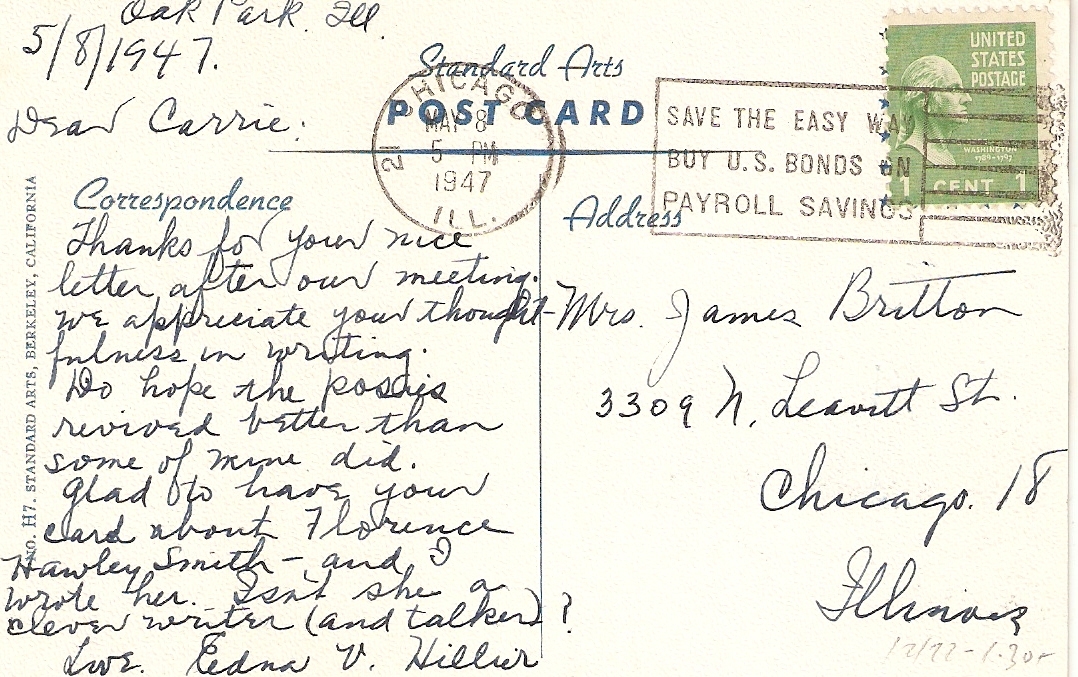 Oak Park. Ill.
5/8/1947.
Dear Carrie:
Standard Arts
POST CARD
Correspondence
Address
CHICAGO
21
MAY 8
5 PM
1947
ILL.
SAVE THE EASY WAY
BUY U.S. BONDS ON
PAYROLL SAVINGS
UNITED
STATES
POSTAGE
WASHINGTON
1789-1797
1 CENT 1
NO. H7. STANDARD ARTS, BERKELEY, CALIFORNIA
Thanks for your nice
letter after our meeting.
We appreciate your thought-
fulness in writing.
Do hope the posies
revived better than
some of mine did.
Glad to have your
card about Florence
Hawley Smith - and I
wrote her. Isn't she a
clever writer (and talker)?
Love. Edna V. Hillier
Mrs. James Britton
3309 N. Leavitt St.
Chicago. 18
Illinois